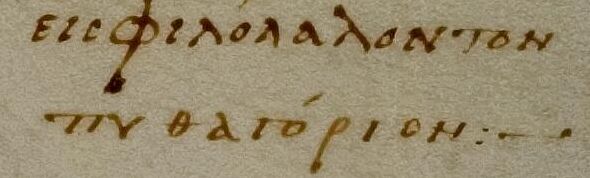 εις φιλόλαλον τον
πυθαγόριον:—